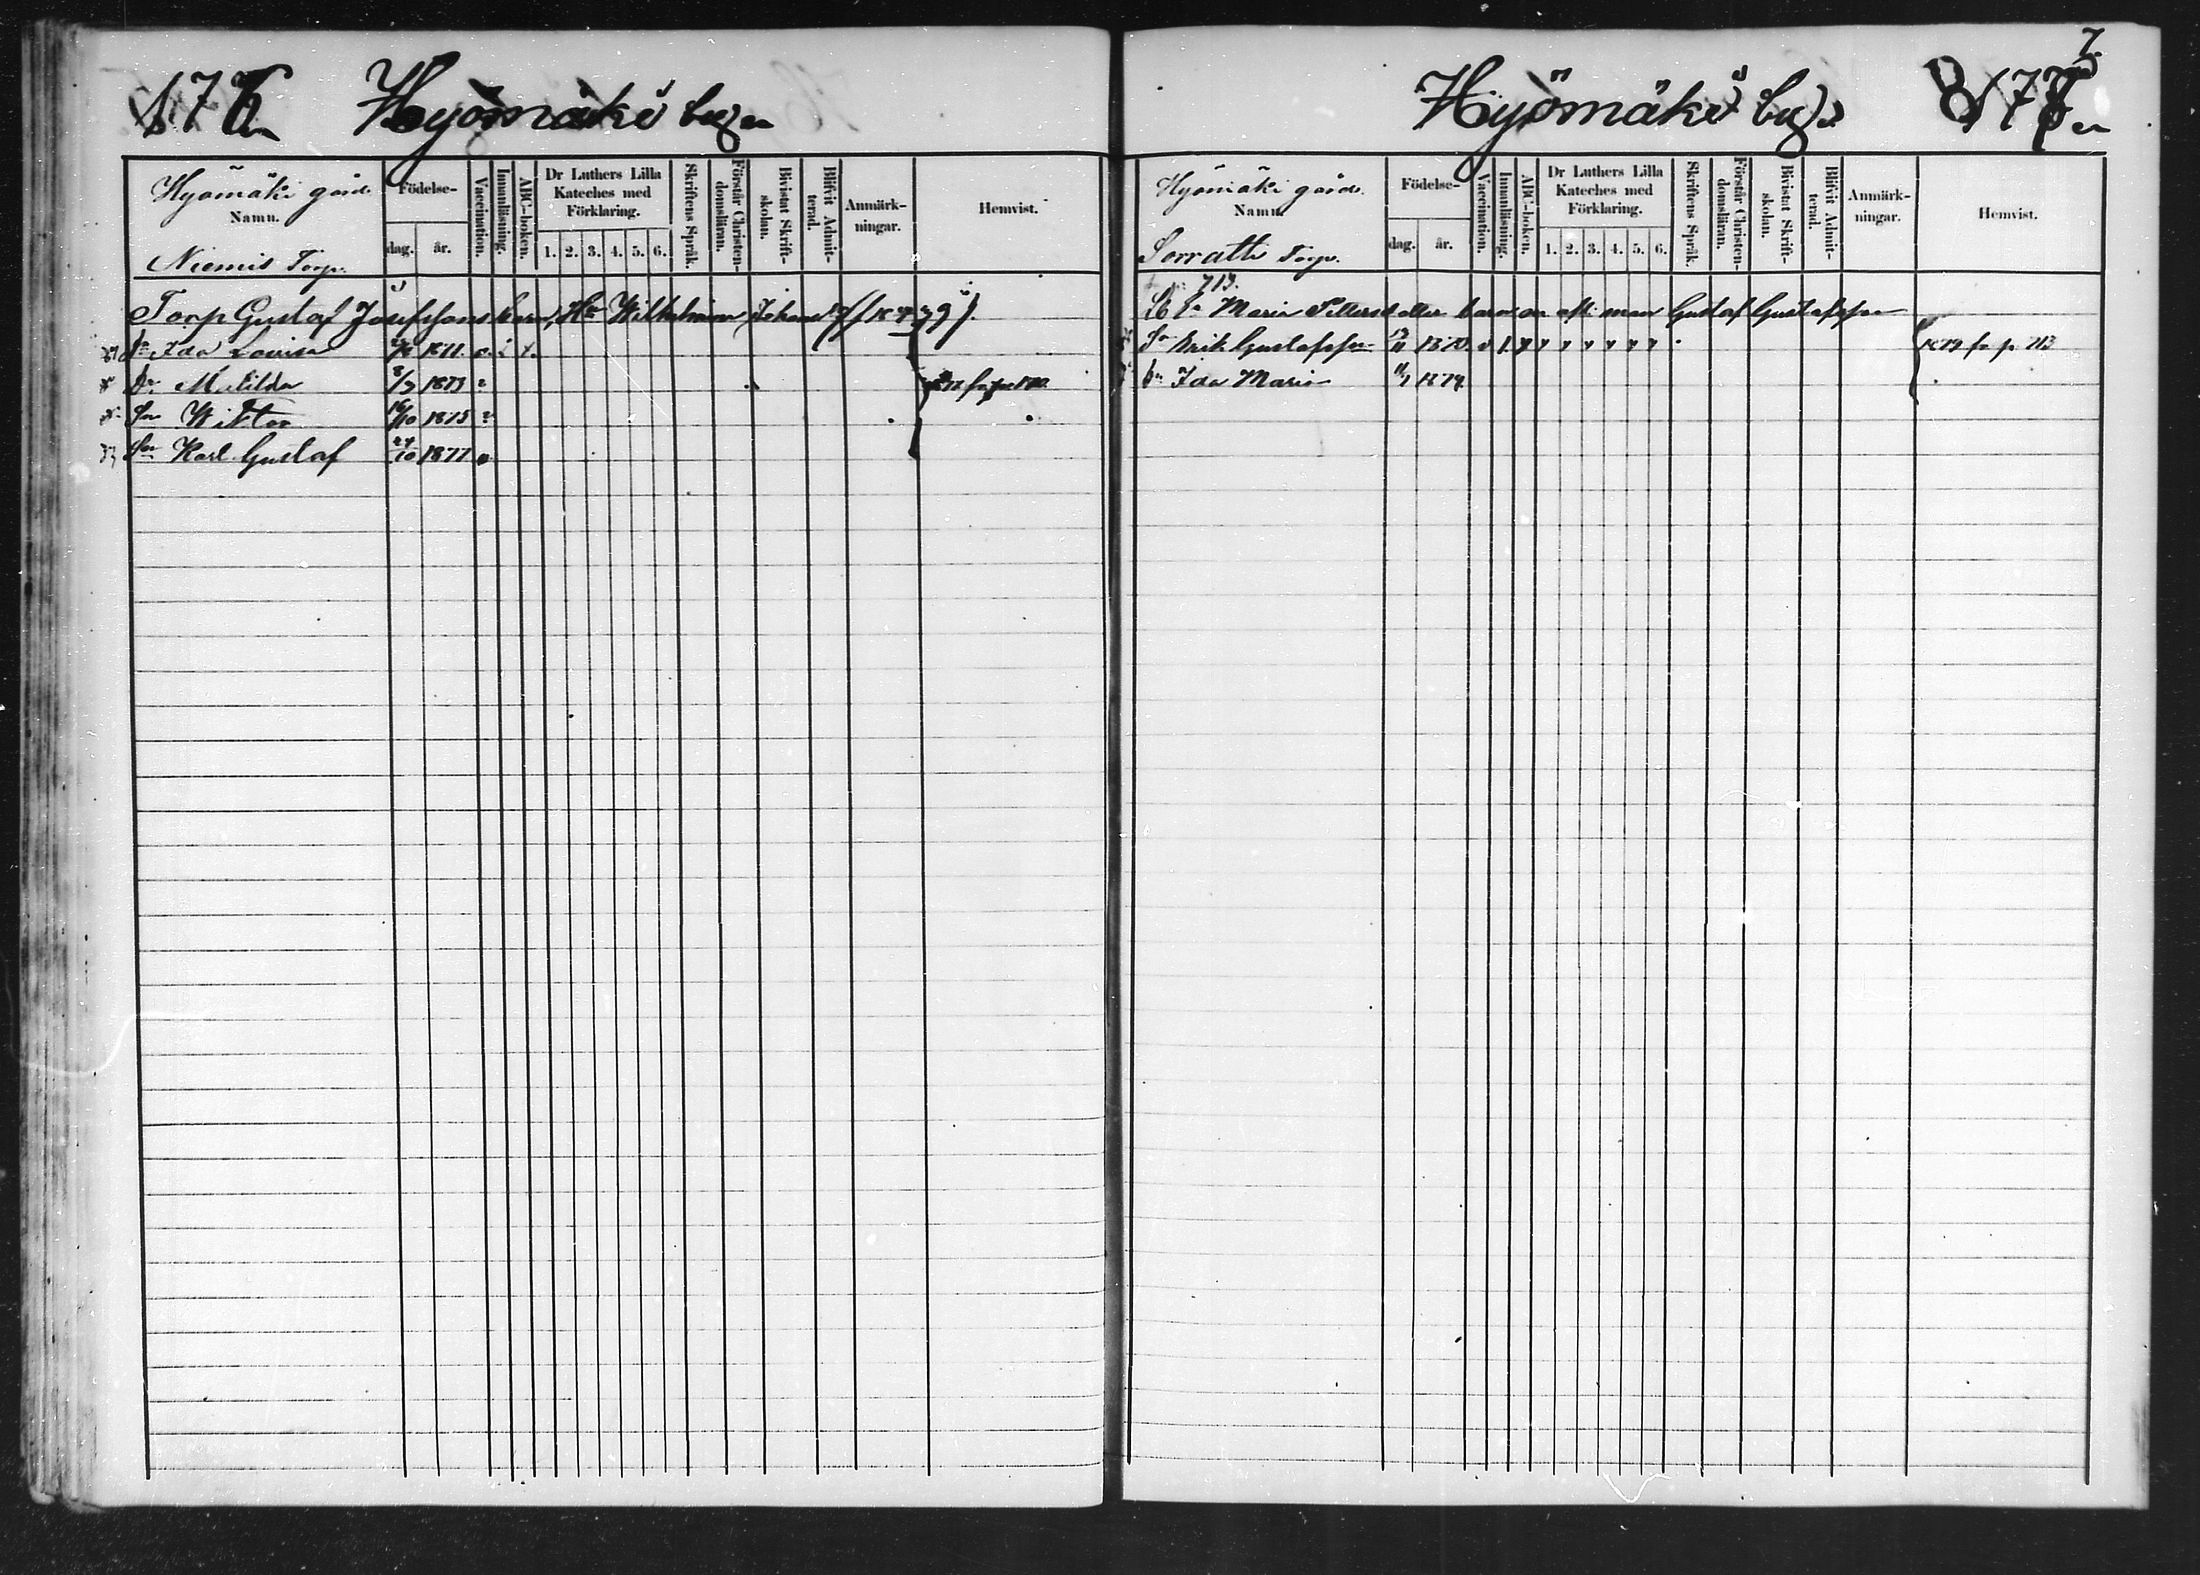 176 Hyömäki by
Hyömäki gård.
Namn.
Niemis Torp.
Födelse-
dag. år.
Vaccination.
Innanläsning.
ABC-boken.
Dr Luthers Lilla
Kateches med
Förklaring.
1. 2. 3. 4. 5. 6.
Skriftens Språk.
Förstår Christen-
domsläran.
Bivistat Skrift-
skolan.
Blifvit Admit-
terad.
Anmärk-
ningar.
Hemvist.
Torp Gustaf Josefssons barn, Hu Wilhelmina Johansd:r
Dr Ida Lovisa 1871
Dr Matilda 8/7 1873
Sn Wiktor 16/10 1875
Sn Karl Gustaf 24/10 1877
7.
Hyömäki by 177
Hyömäki gård.
Namn.
Sorratti Torp.
Födelse-
dag. år.
Vaccination.
Innanläsning.
ABC-boken.
Dr Luthers Lilla
Kateches med
Förklaring.
1. 2. 3. 4. 5. 6.
Skriftens Språk.
Förstår Christen-
domsläran.
Bivistat Skrift-
skolan.
Blifvit Admit-
terad.
Anmärk-
ningar.
Hemvist.
713.
Maria barn man Gustaf Gustafsson
Sn Erik Gustafsson 1870 fr p 713
Dr Ida Maria 1874